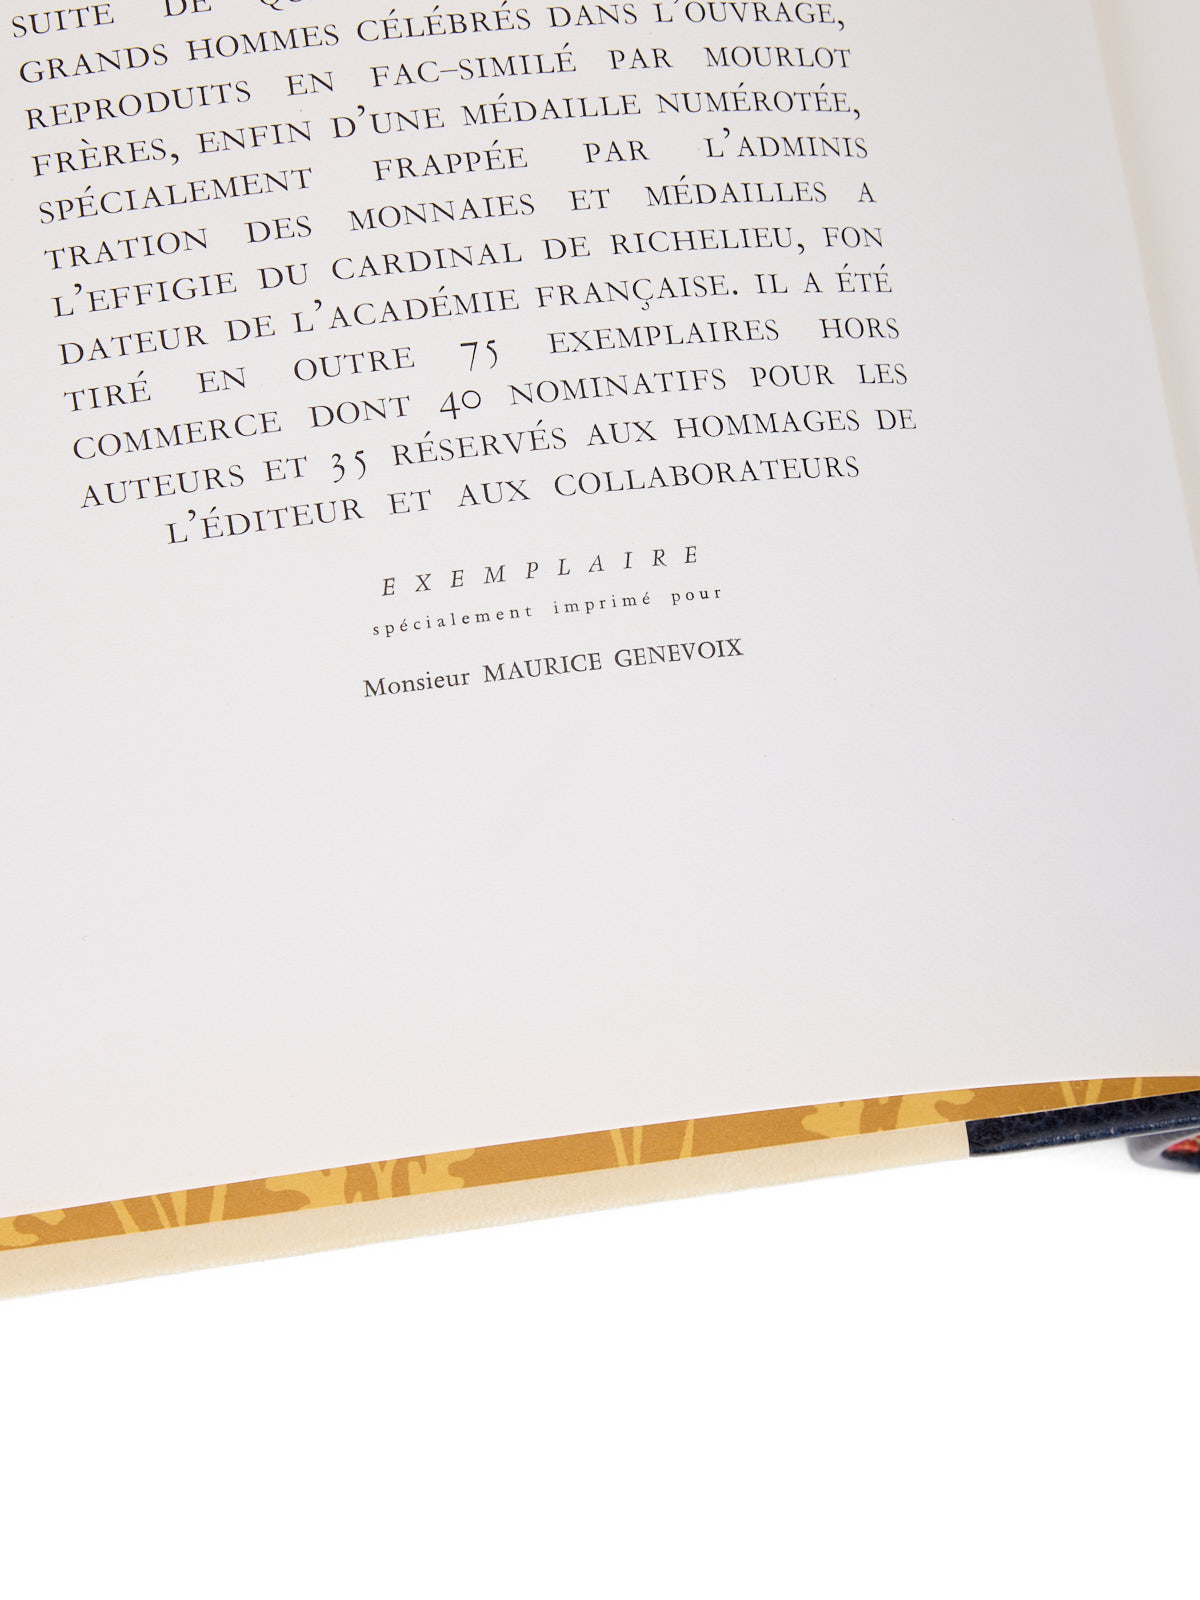 SUITE DE
GRANDS HOMMES CÉLÉBRÉS DANS L'OUVRAGE,
REPRODUITS EN FAC–SIMILÉ PAR MOURLOT
FRÈRES, ENFIN D'UNE MÉDAILLE NUMÉROTÉE,
SPÉCIALEMENT FRAPPÉE PAR L'ADMINIS
TRATION DES MONNAIES ET MÉDAILLES A
L'EFFIGIE DU CARDINAL DE RICHELIEU, FON
DATEUR DE L'ACADÉMIE FRANÇAISE. IL A ÉTÉ
TIRÉ EN OUTRE 75 EXEMPLAIRES HORS
COMMERCE DONT 40 NOMINATIFS POUR LES
AUTEURS ET 35 RÉSERVÉS AUX HOMMAGES DE
L'ÉDITEUR ET AUX COLLABORATEURS
EXEMPLAIRE
spécialement imprimé pour
Monsieur MAURICE GENEVOIX